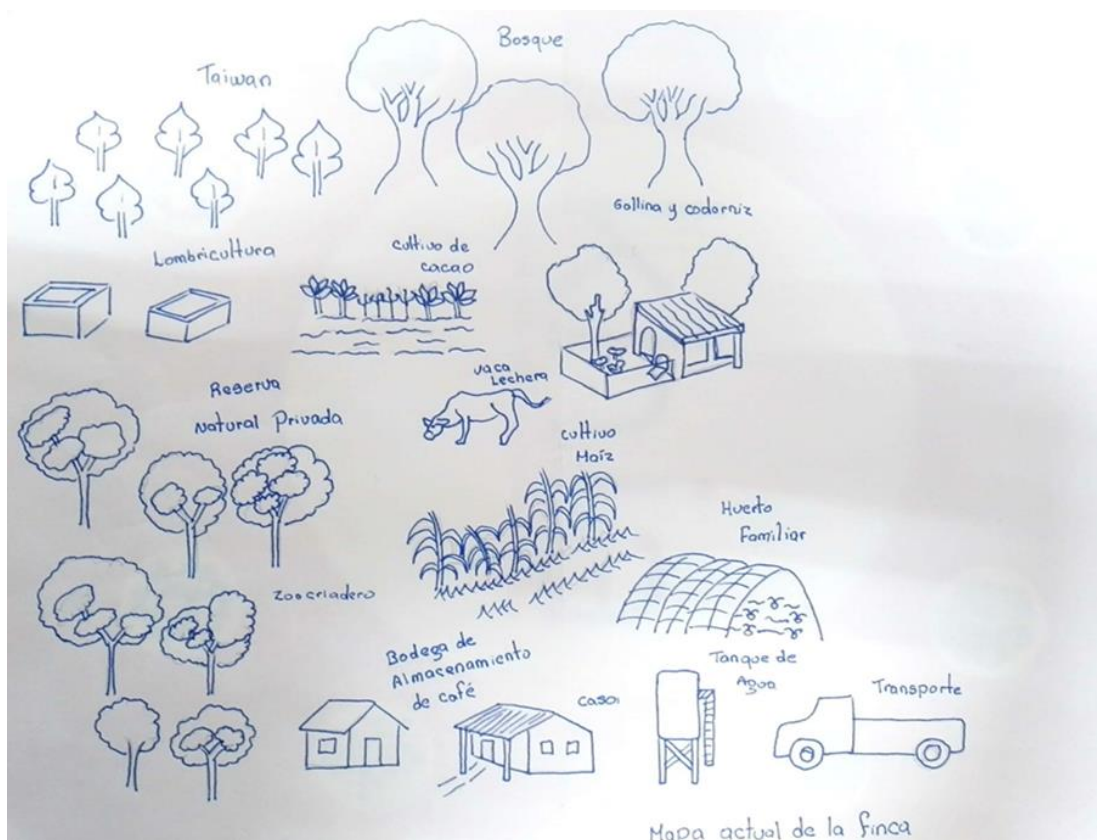 Bosque
Taiwan
Gallina y codorniz
Lombricultura
cultivo de
cacao
vaca
Lechera
Reserva
Natural Privada
cultivo
Maíz
Huerto
Familiar
Zoocriadero
Bodega de
Almacenamiento
de café
casa
Tanque de
Agua
Transporte
Mapa actual de la finca